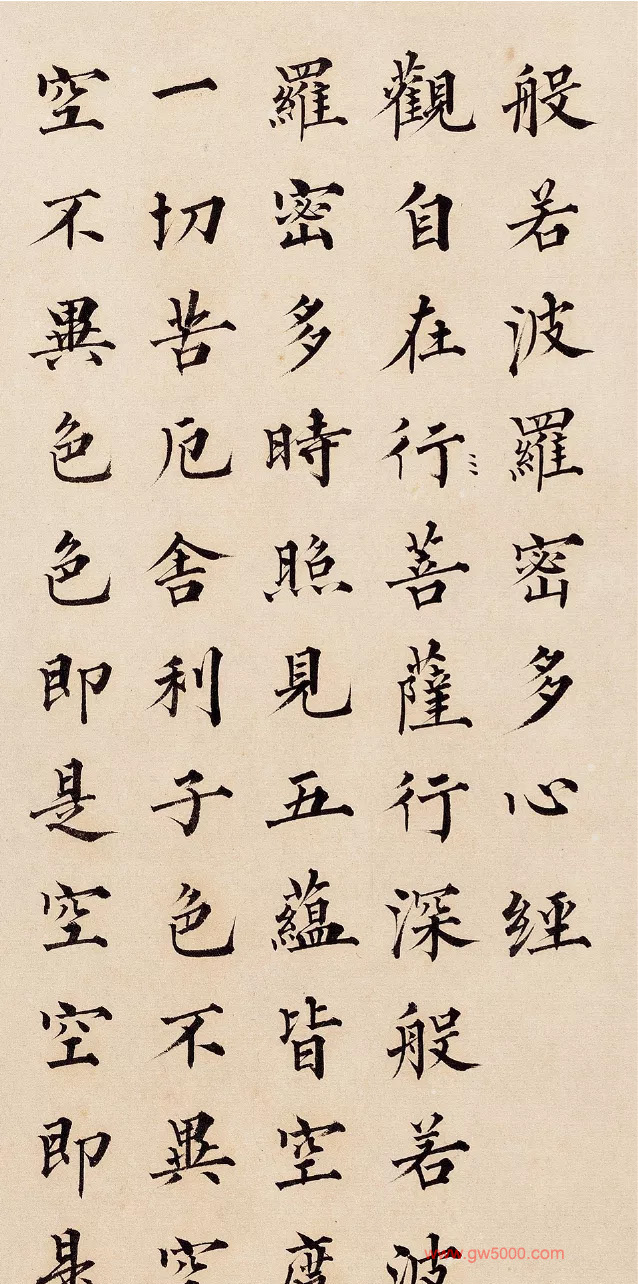 般若波羅密多心經
觀自在行菩薩行深般若波
羅密多時照見五蘊皆空度
一切苦厄舍利子色不異空
空不異色色即是空空即是
www.gw5000.com